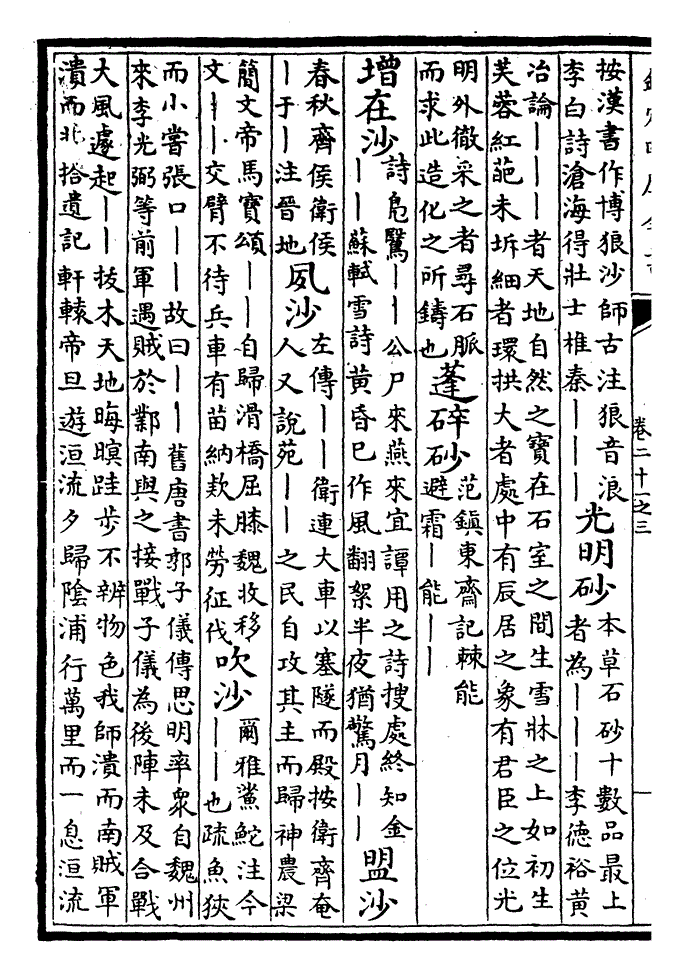 卷二十一之三
按漢書作博狼沙師古注狼音浪
李白詩滄海得壯士椎秦丨丨丨
光明砂
本草石砂十數品最上
者為丨丨丨李德裕黃
冶論丨丨丨者天地自然之寶在石室之間生雪牀之上如初生
芙蓉紅葩未坼細者環拱大者處中有辰居之象有君臣之位光
明外徹采之者尋石脈
而求此造化之所鑄也
蓬碎砂
范鎮東齋記棘能
避霜丨能丨丨
增在沙
詩鳧鷖丨丨公尸來燕來宜譚用之詩搜處終知金
丨丨蘇軾雪詩黃昏已作風翻絮半夜猶驚月丨丨
盟沙
春秋齊侯衛侯
丨于丨注晉地
夙沙
左傳丨丨衛連大車以塞隧而殿按衛齊奄
人又說苑丨丨之民自攻其主而歸神農梁
簡文帝馬寶頌丨丨自歸滑橋屈膝魏收移
文丨丨交臂不待兵車有苗納款未勞征伐
吹沙
爾雅鯊鮀注今
丨丨也疏魚狹
而小嘗張口丨丨故曰丨丨舊唐書郭子儀傳思明率衆自魏州
來李光弼等前軍遇賊於鄴南與之接戰子儀為後陣未及合戰
大風遽起丨丨拔木天地晦暝跬步不辨物色我師潰而南賊軍
潰而北拾遺記軒轅帝旦遊洹流夕歸陰浦行萬里而一息洹流